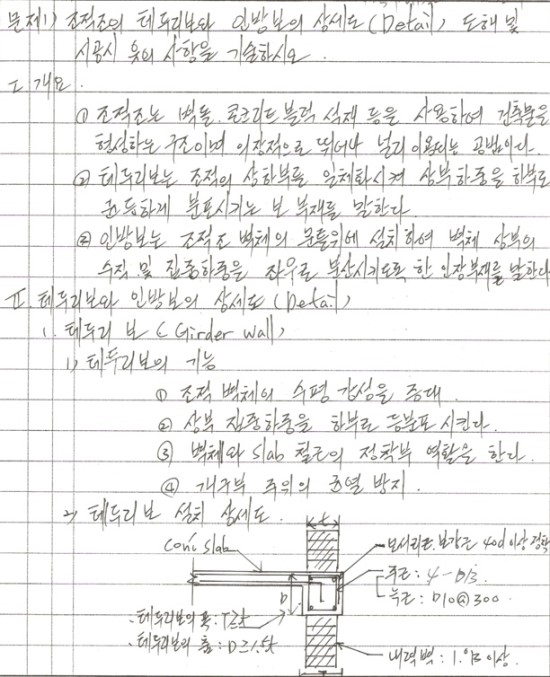 문제1) 조적조의 테두리보와 인방보의 상세도(Detail) 도해 및
시공시 유의 사항을 기술하시오.
I. 개요.
① 조적조는 벽돌, 콘크리트 블럭, 석재 등을 사용하여 건축물을
형성하는 구조이며 의장적으로 뛰어나 널리 이용되는 공법이다.
② 테두리보는 조적의 상하부를 일체화시켜 상부하중을 하부로
균등하게 분포시키는 보 부재를 말한다.
② 인방보는 조적조 벽체의 문틀위에 설치하여 벽체 상부의
수직 및 집중하중을 좌우로 분산시키도록 한 인장부재를 말한다
II. 테두리보와 인방보의 상세도(Detail)
1. 테두리 보 (Girder wall)
1) 테두리보의 기능
① 조적 벽체의 수평 강성을 증대.
② 상부 집중하중을 하부로 등분포 시킨다.
③ 벽체와 slab 철근의 정착부 역할을 한다.
④ 개구부 주위의 균열 방지.
2) 테두리보 설치 상세도.
t
Conc slab
모서리는 보강근 40d이상 정착
D
주근: 4-D13
늑근: D10@300
테두리보의 폭: T≥t
테두리보의 춤: D≥1.5t
내력벽: 1.0B 이상
T